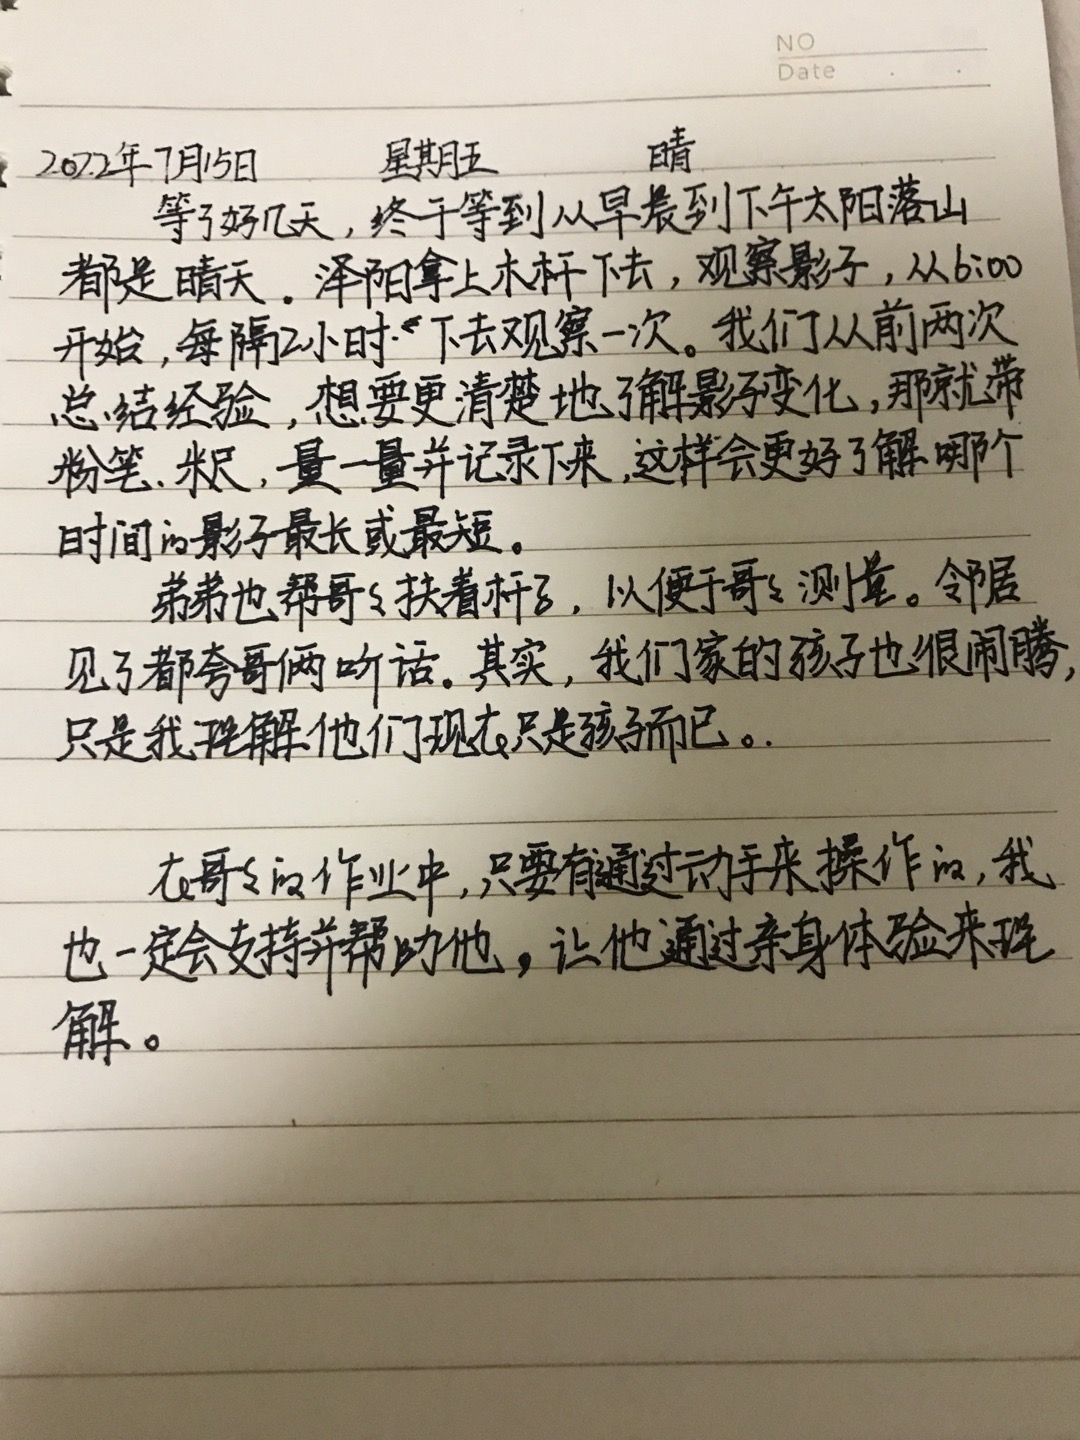 NO
Date
2022年7月15日 星期五 晴
等了好几天，终于等到从早晨到下午太阳落山
都是晴天。泽阳拿上木杆下去，观察影子，从6:00
开始，每隔2小时下去观察一次。我们从前两次
总结经验，想要更清楚地了解影子变化，那就带
粉笔、米尺，量一量并记录下来，这样会更好了解哪个
时间的影子最长或最短。
弟弟也帮哥々扶着杆子，以便于哥々测量。邻居
见了都夸哥俩听话。其实，我们家的孩子也很闹腾，
只是我理解他们现在只是孩子而已。
在哥々的作业中，只要有通过动手来操作的，我
也一定会支持并帮助他，让他通过亲身体验来理
解。